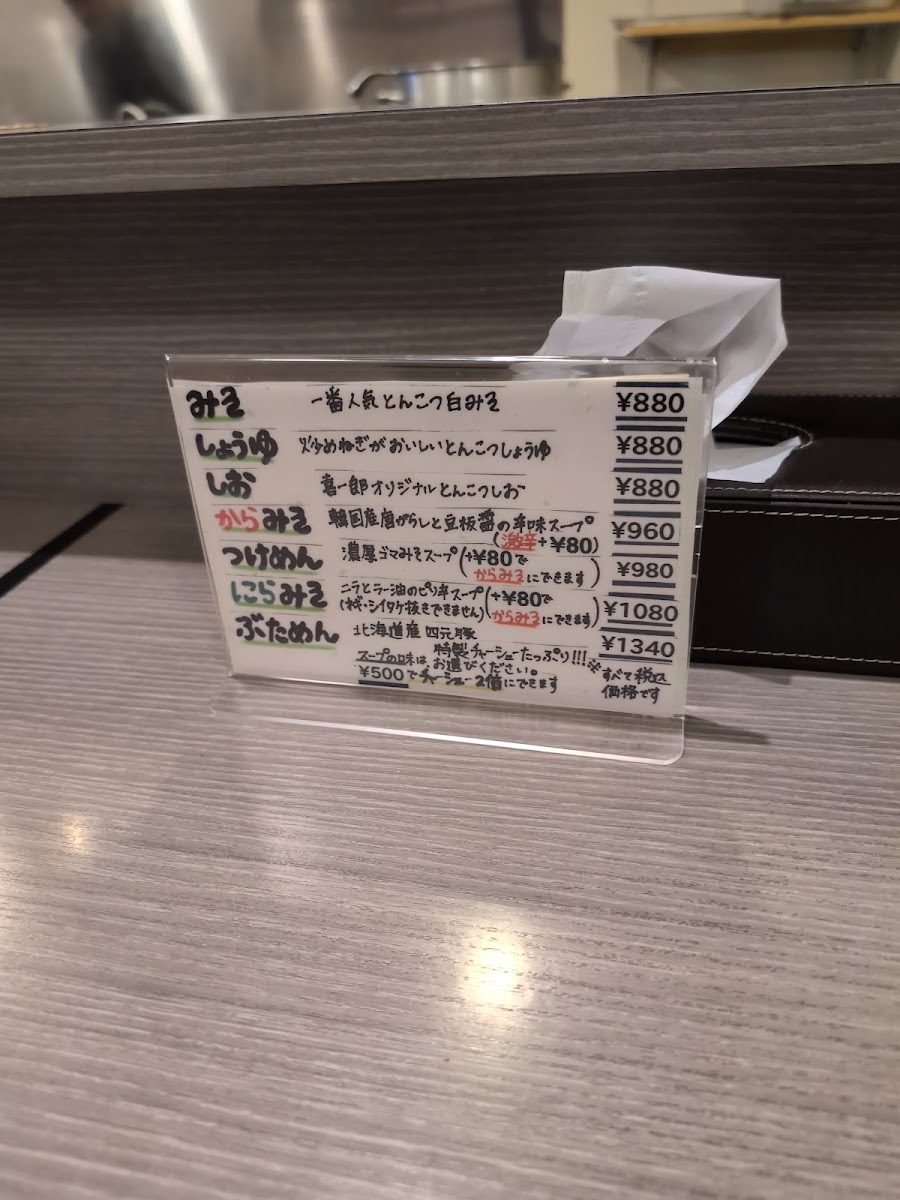 みそ 一番人気とんこつ白みそ ¥880
しょうゆ 炒めねぎがおいしいとんこつしょうゆ ¥880
しお 喜一郎オリジナルとんこつしお ¥880
からみそ 韓国産唐がらしと豆板醤の辛味スープ ¥960
(激辛+¥80)
つけめん 濃厚ゴマみそスープ(+¥80で からみそにできます) ¥980
にらみそ ニラとラー油のピリ辛スープ (ネギ・シイタケ抜きできません) (+¥80で からみそにできます) ¥1080
ぶためん 北海道産四元豚 ¥1340
特製チャーシューたっぷり!!!
スープの味は、お選びください。
¥500でチャーシュー2倍にできます
※すべて税込
価格です